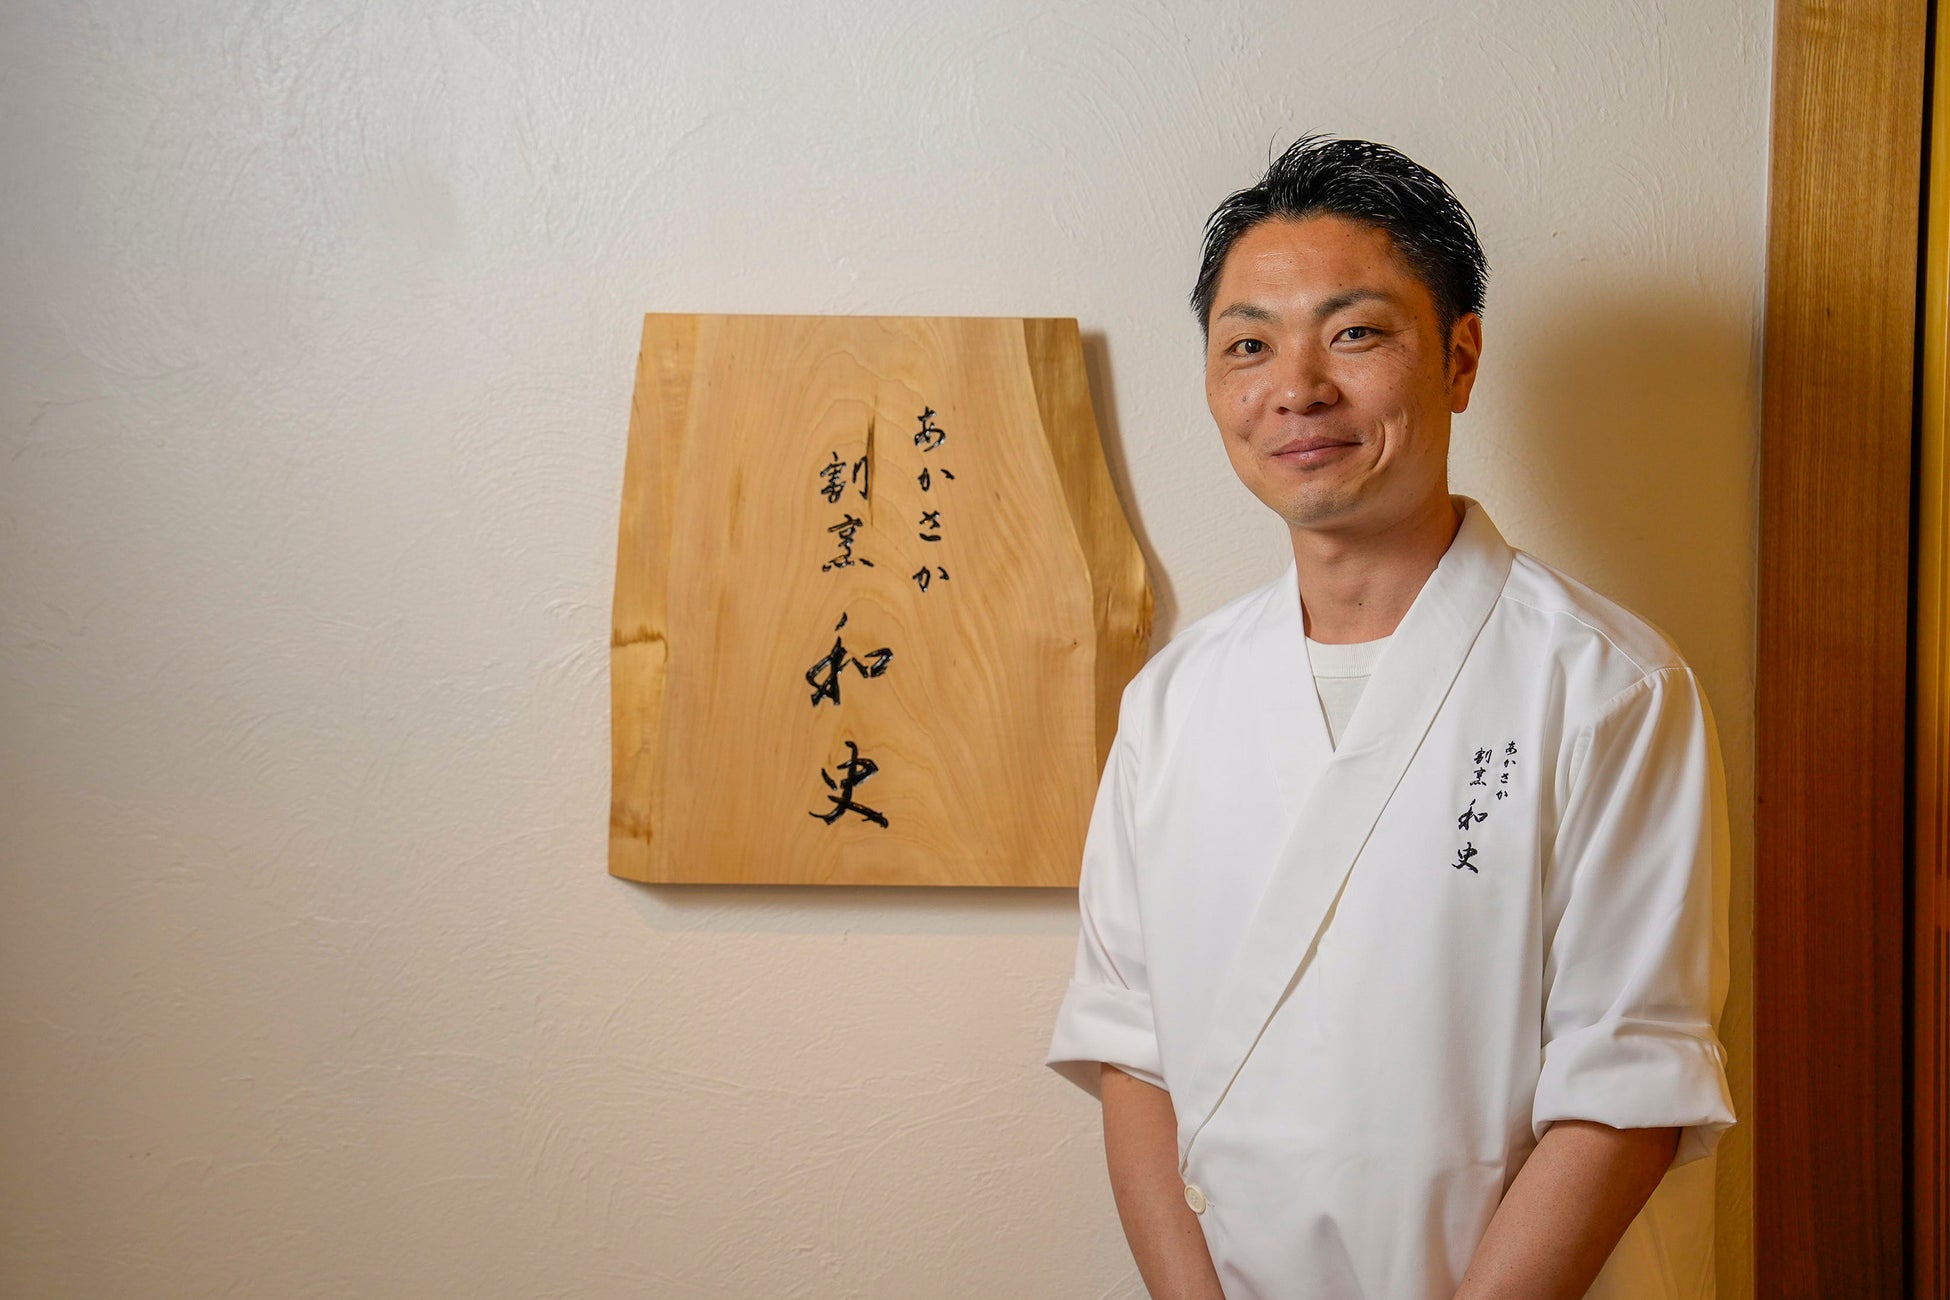 あかさか
割烹
和史
あかさか
割烹
和史